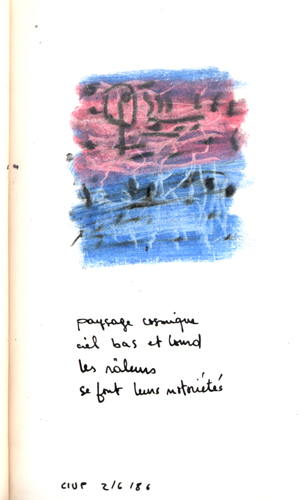 paysage cosmique
ciel bas et lourd
les râleurs
se font leurs notoriétés
CIUP 2/6/86